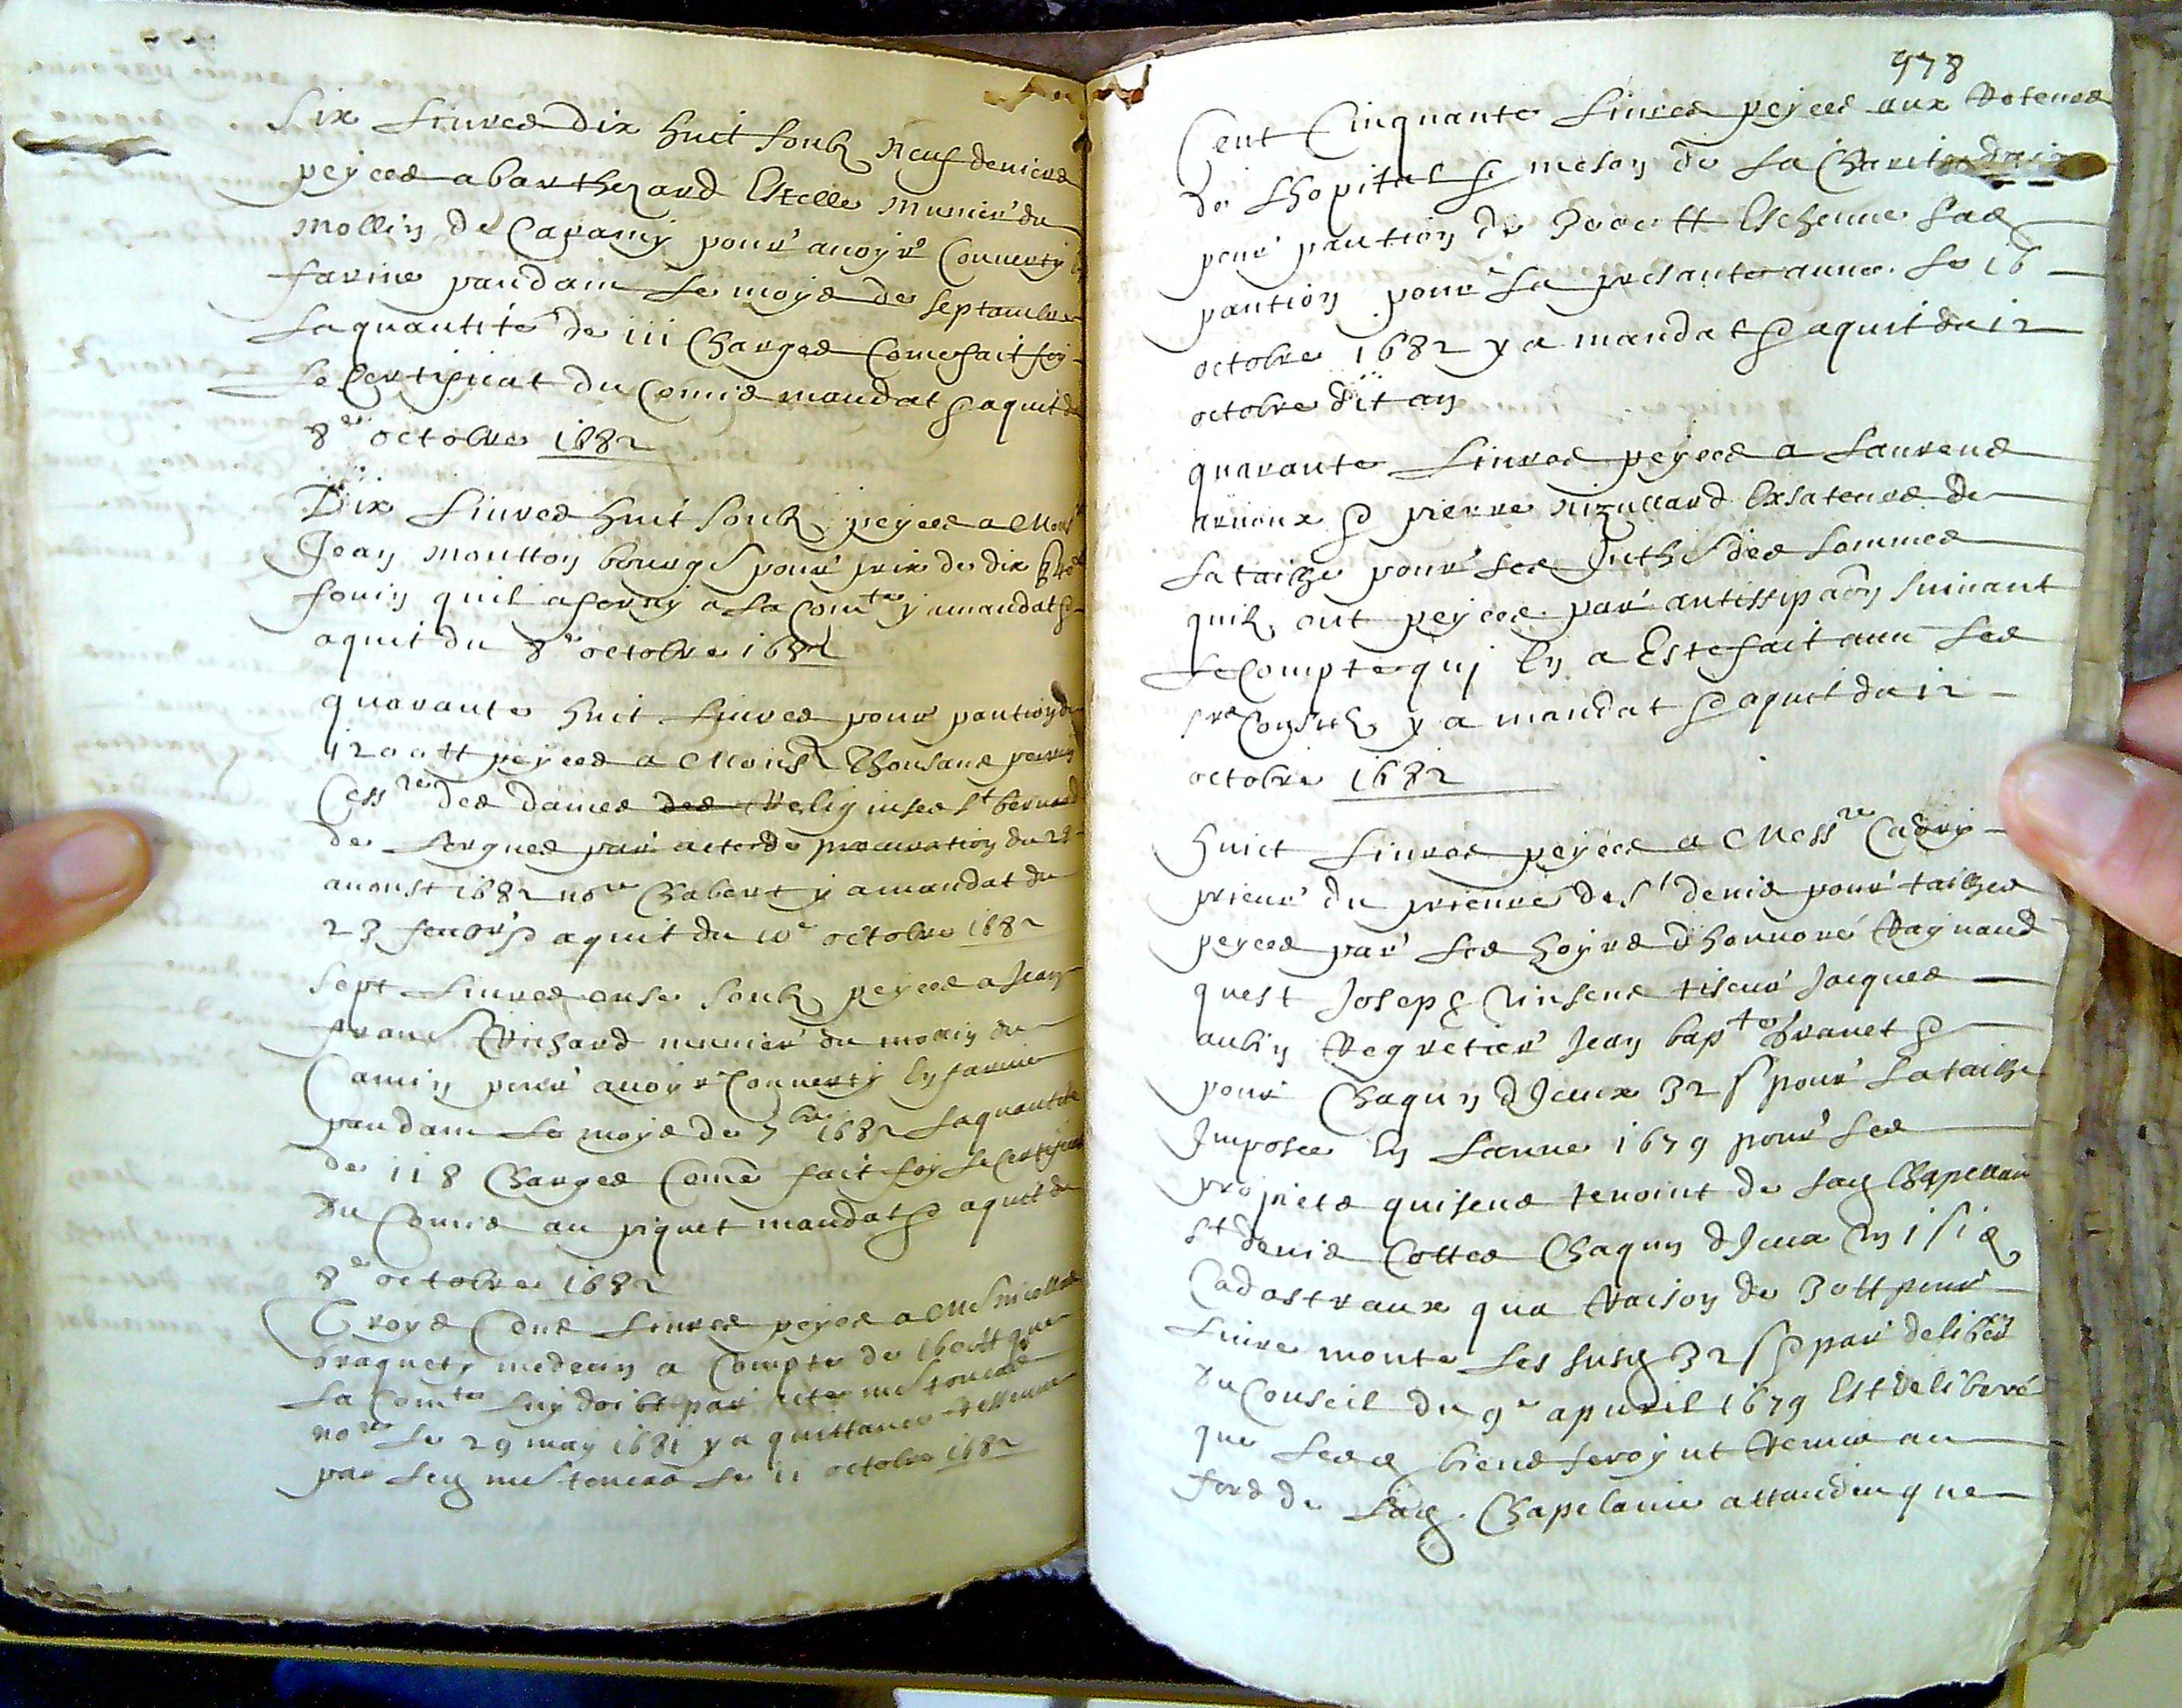 Six livres dix huit soulz neuf deniers
peyees a barthezard Estelle munier du
mollin de Caramy pour avoyr Converty
farine pandam le moys de septambre
la quantité de 111 Charges Come fait foy
le Certificat du Comis mandat & aquit du
8e octobre 1682
Dix livres huit soulz peyees a Mons
Jean moutton bourgs pour prix de dix
fouin quil a forny a la Comte y a mandat &
aquit du 8e octobre 1682
quarante huit livres pour pantion de
1200 tt peyees a Monsr
Cessre des dames des Religiuses St bernard
de Lorgues par acte de procuration du 28
auoust 1682 nore Chabert y a mandat du
23 feuvr & aquit du 10e octobre 1682
Sept livres onse soulz peyees a Jean
frans Richard munier du moain du
Camin pour avoyr Converty En farine
pandam le moys de 7bre 1682 la quantité
de 118 Charges Come fait foy le Certificat
du Comis au piquet mandat & aquit du
8e octobre 1682
Troys Cens livres peyes a
braquety medecin a Compte de 1600 tt que
la Comte luy doibt par acte
nore le 29 may 1681 y a quittance
par le 11 octobre 1682
978
Cent Cinquante livres peyees aux Reteurs
de Lhopital & meson de la Charité
pour pantion de 3000 tt Escheue lad
pantion pour la presante annee le 16
octobre 1682 y a mandat & aquit du 12
octobre dit an
quarante livres peyees a Laurens
arnoux & pierre Exsateurs de
la tailhe pour les Inths des sommes
quilz ont peyees par antissipaon suivant
le Compte quj En a Este fait avec les
srs Consulz y a mandat & aquit du 12
octobre 1682
huict livres peyees a Messre Cadry
prieur du prieuré de St denis pour tailhes
peyees par les hoyrs dhonnoré Raynaud
quest Joseph Vinsens tiseur Jacques
aubin Regretier Jean bapte Branet &
pour Chaqun dJceux 32 s pour la tailhe
Jmposee En Lannee 1679 pour les
propietés quisens tenoint de lad Chapellanie
St denis Cottes Chaqun dJceux
Cadastraux qua Raison de 30 tt pour
livre monte les susd 32 s & par deliber
du Conseil du 9e apvril 1679 Est deliberé
que lesd biens seroynt Remis au
fons de lad. Chapelanie attandeu que